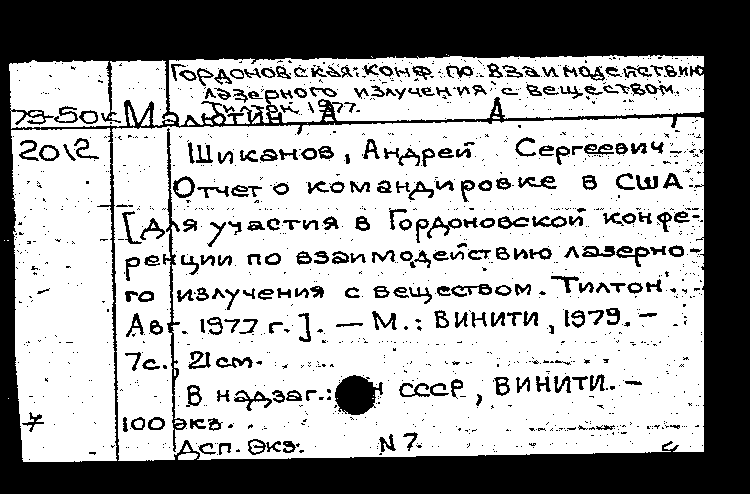 Гордоновская конф. по взаимодействию
лазерного излучения с веществом.
Тилтон 1977.
79-50к Малютин, А А
20\2 Шиканов, Андрей Сергеевич
Отчет о командировке в США
[для участия в Гордоновской конфе-
ренции по взаимодействию лазерно-
го излучения с веществом. Тилтон.
Авг. 1977 г.]. — М.: ВИНИТИ, 1979. —
7с.; 21см.
В надзаг.: СССР, ВИНИТИ. —
100 экз.
Дсп. Экз. N 7.